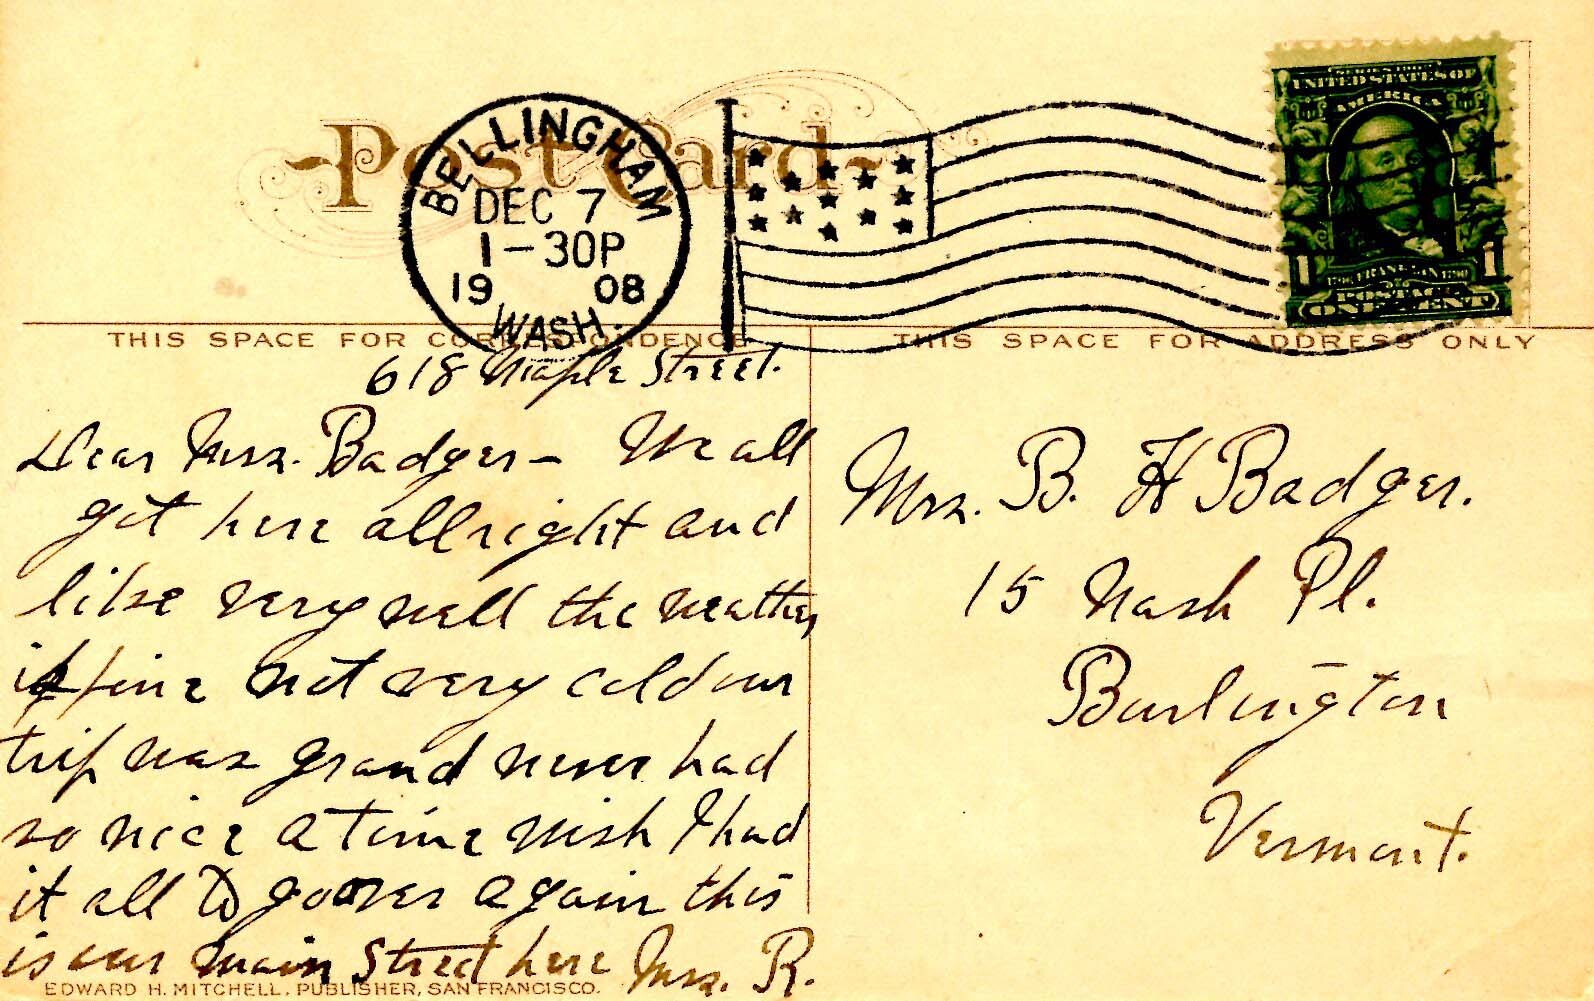 Post Card
BELLINGHAM
DEC 7
1-30P
19 08
WASH.
UNITED STATES OF
AMERICA
1 FRANKLIN 1
POSTAGE
ONE CENT
THIS SPACE FOR CORRESPONDENCE
THIS SPACE FOR ADDRESS ONLY
618 Maple Street.
Dear Mrs. Badger - We all
got here allright and
like very well the weather
is fine not very cold our
trip was grand never had
so nice a time wish I had
it all to go over again this
is our main Street here Mrs. R.
EDWARD H. MITCHELL, PUBLISHER, SAN FRANCISCO.
Mrs. B. H Badger.
15 Nash Pl.
Burlington
Vermont.